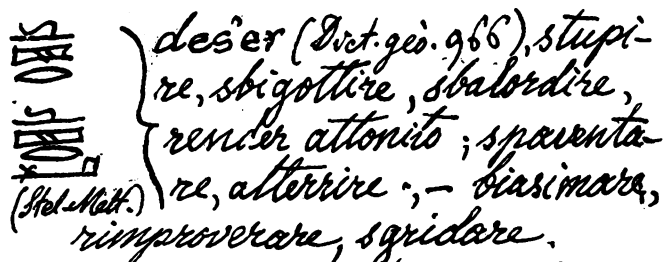 des̑er (Dict. gèo. 966), stupi-
re, sbigottire, sbalordire,
render attonito; spaventa-
re, atterrire ; — biasimare,
(Stel. Mett.)
rimproverare, sgridare.